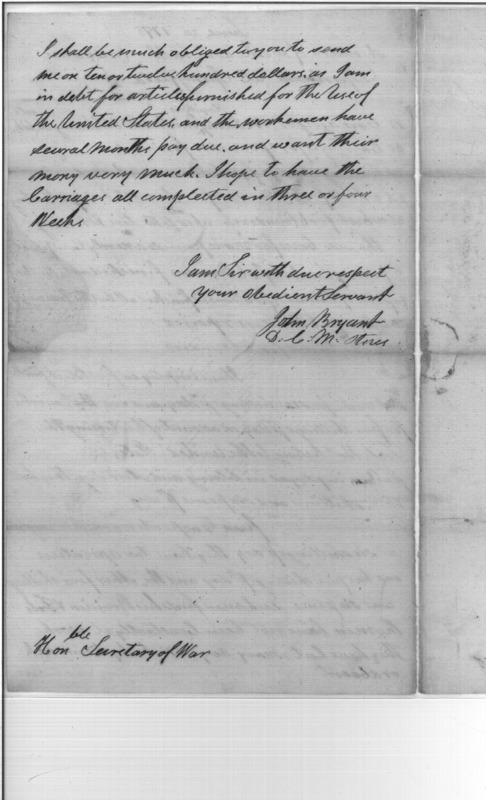 I shall be much obliged to you to send
me on ten or twelve hundred dollars, as I am
in debt for articles furnished for the Use of
the United States, and the workemen have
several months pay due, and want their
mony very much. I hope to have the
Carriages all complected in three or four
Weeks
I am Sir with due respect
your obedient Servant
John Bryant
D. C. M. Stores
Honble Secretary of War